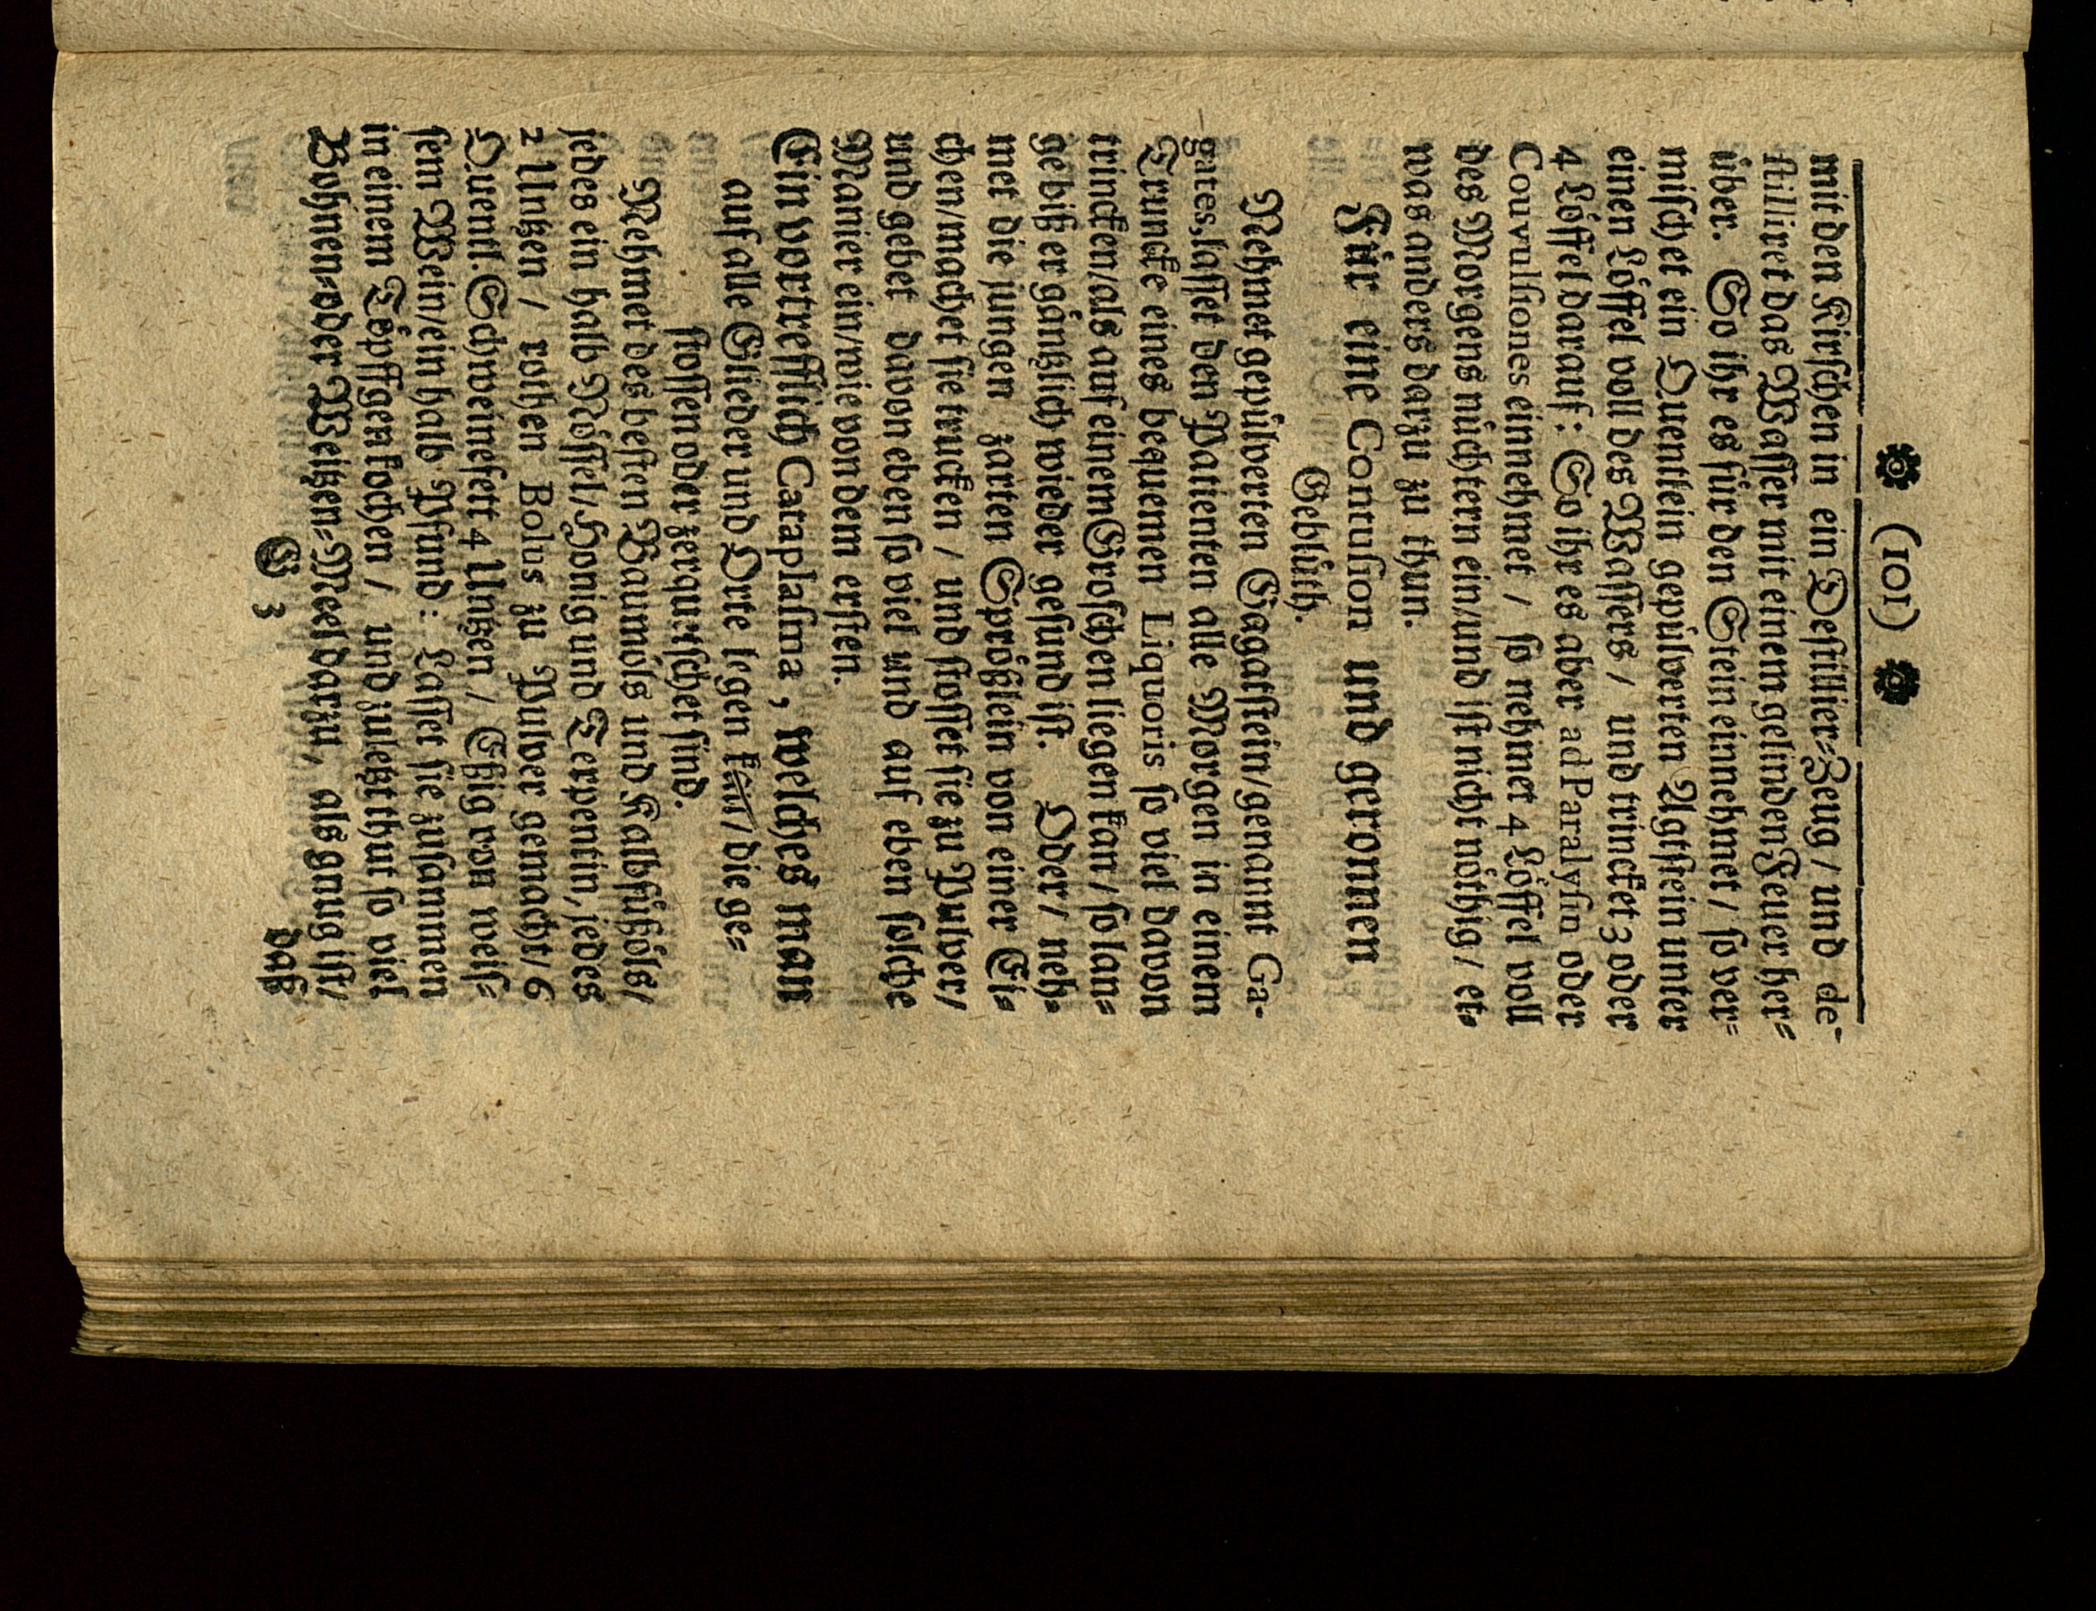 ❁ (101) ❁
mit den Kirschen in ein Destillier-Zeug / und de-
stilliret das Wasser mit einem gelinden Feuer her-
über. So ihr es für den Stein einnehmet / so ver-
mischet ein Quentlein gepülverten Agtstein unter
einen Löffel voll des Wassers / und trincket 3 oder
4 Löffel darauf: So ihr es aber ad Paralysin oder
Couvulsiones einnehmet / so nehmet 4 Löffel voll
des Morgens nüchtern ein / und ist nicht nöthig / et-
was anders darzu zu thun.
Für eine Contusion und geronnen
Geblüth.
Nehmet gepülverten Gagatstein / genannt Ga-
gates, lasset den Patienten alle Morgen in einem
Truncke eines bequemen Liquoris so viel davon
trincken / als auf einem Groschen liegen kan / so lan-
ge biß er gäntzlich wieder gesund ist. Oder / neh-
met die jungen zarten Sprößlein von einer Ei-
chen / machet sie trucken / und stosset sie zu Pulver /
und gebet davon eben so viel und auf eben solche
Manier ein / wie von dem ersten.
Ein vortrefflich Cataplasma, welches man
auf alle Glieder und Orte legen kan / die ge-
stossen oder zerquetschet sind.
Nehmet des besten Baumöls und Kalbfußöls /
jedes ein halb Nössel / Honig und Terpentin, jedes
2 Untzen / rothen Bolus zu Pulver gemacht / 6
Quentl. Schweinefett 4 Untzen / Eßig von weis-
sem Wein / ein halb Pfund: Lasset sie zusammen
in einem Töpffgen kochen / und zuletzt thut so viel
Bohnen- oder Weitzen-Meel darzu, als gnug ist /
G 3
daß